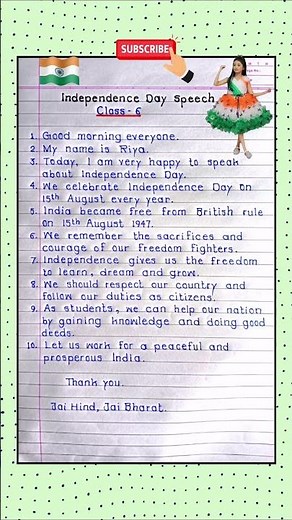 SUBSCRIBE
Independence Day Speech
Class - 6
1. Good morning everyone.
2. My name is Riya.
3. Today, I am very happy to speak
about Independence Day.
4. We celebrate Independence Day on
15th August every year.
5. India became free from British rule
on 15th August 1947.
6. We remember the sacrifices and
courage of our freedom fighters.
7. Independence gives us the freedom
to learn, dream and grow.
8. We should respect our country and
follow our duties as citizens.
9. As students, we can help our nation
by gaining knowledge and doing good
deeds.
10. Let us work for a peaceful and
prosperous India.
Thank you.
Jai Hind, Jai Bharat.